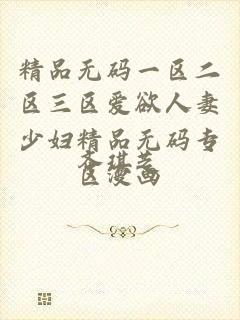 精品无码一区二
区三区爱欲人妻
少妇精品无码专
区漫画
齐琪芝